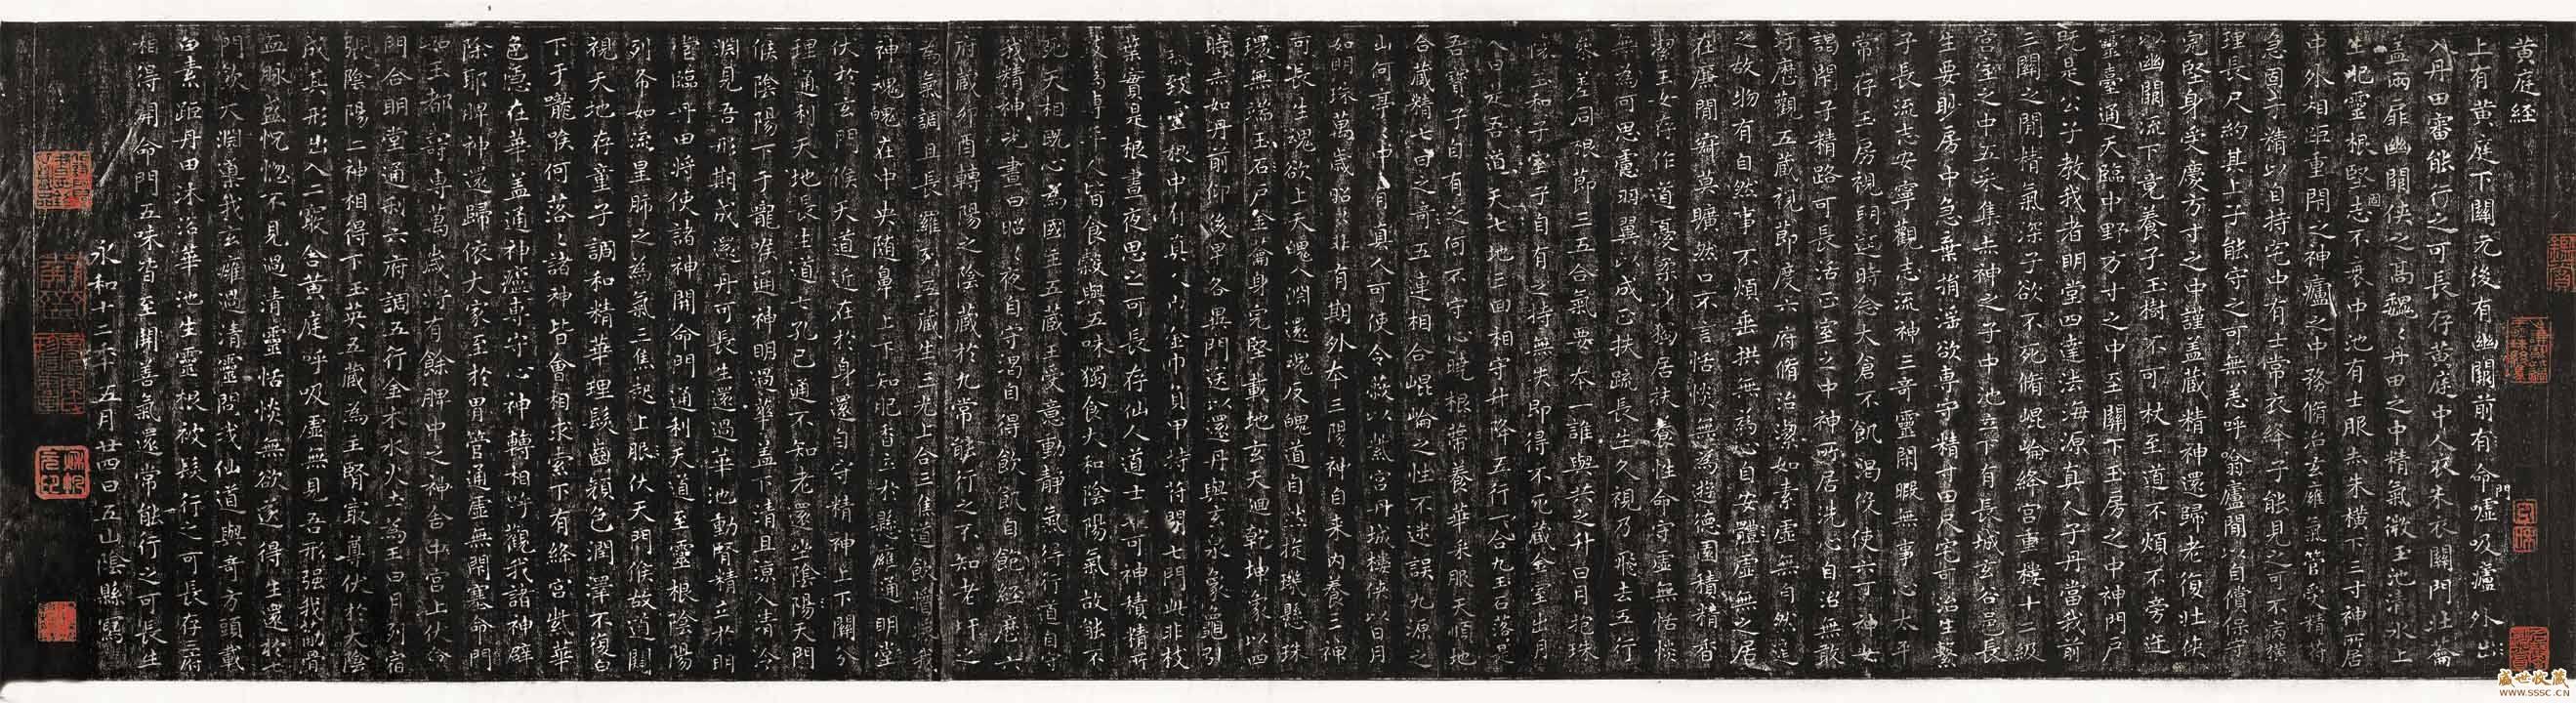 黄庭經
上有黄庭下關元後有幽闕前有命門嘘吸廬外出
入丹田審能行之可長存黄庭中人衣朱衣關門壮籥
盖兩扉幽闕俠之高魏〻丹田之中精氣微玉池清水上
生肥靈根堅固志不衰中池有士服赤朱横下三寸神所居
中外相距重閇之神廬之中務脩治玄廱氣管受精符
急固子精以自持宅中有士常衣絳子能見之可不病横
理長尺約其上子能守之可無恙呼噏廬閒以自償保守
完堅身受慶方寸之中謹盖藏精神還歸老復壮俠
以幽闕流下竟養子玉樹不可杖至道不煩不旁迕
靈臺通天臨中野方寸之中至關下玉房之中神門戸
既是公子教我者明堂四達法海源真人子丹當我前
三關之閒精氣深子欲不死脩崐崘絳宫重樓十二級
宫室之中五采集赤神之子中池立下有長城玄谷邑長
生要眇房中急棄捐滛欲専守精寸田尺宅可治生繫
子長流志安寧觀志流神三奇靈閒暇無事心太平
常存玉房視明達時念大倉不飢渴役使六丁神女
謁閇子精路可長活正室之中神所居洗心自治無敢
汙歴觀五藏視節度六府脩治潔如素虚無自然道
之故物有自然事不煩垂拱無為心自安體虚無之居
在廉閒寂莫曠然口不言恬惔無為遊徳園積精香
潔玉女存作道憂柔身獨居扶養性命守虚無恬惔
無為何思慮羽翼以成正扶疏長生久視乃飛去五行
參差同根節三五合氣要本一誰與共之升日月抱珠
懷玉和子室子自有之持無失即得不死藏金室出月
入日是吾道天七地三回相守升降五行一合九玉石落是
吾寶子自有之何不守心暁根蔕養華采服天順地
合藏精七日之奇五連相合崐崘之性不迷誤九源之
山何亭〻中有真人可使令蔽以紫宫丹城樓俠以日月
如明珠萬歳昭〻非有期外本三陽神自来内養三神
可長生魂欲上天魄入淵還魂反魄道自然旋璣懸珠
環無端玉石戸金籥身完堅載地玄天迴乾坤象以四
時赤如丹前仰後卑各異門送以還丹與玄泉象龜引
氣致靈根中有真人巾金巾負甲持符開七門此非枝
葉實是根晝夜思之可長存仙人道士非可神積精所
致為専年人皆食穀與五味獨食大和陰陽氣故能不
死天相既心為國主五藏王受意動静氣得行道自守
我精神光晝日昭〻夜自守渇自得飲飢自飽經歴六
府藏卯酉轉陽之陰藏於九常能行之不知老肝之
為氣調且長羅列五藏生三光上合三焦道飲漿我
神魂魄在中央随鼻上下知肥香立於懸廱通明堂
伏於玄門候天道近在於身還自守精神上下關分
理通利天地長生道七孔已通不知老還坐陰陽天門
候陰陽下于嚨喉通神明過華盖下清且涼入清泠
淵見吾形期成還丹可長生還過華池動腎精立於明
堂臨丹田將使諸神開命門通利天道至靈根陰陽
列布如流星肺之為氣三焦起上服伏天門候故道闚
視天地存童子調和精華理髮齒顔色潤澤不復白
下于嚨喉何落〻諸神皆會相求索下有絳宫紫華
色隱在華盖通神廬専守心神轉相呼觀我諸神辟
除耶脾神還歸依大家至於胃管通虚無閇塞命門
如玉都壽専萬歳將有餘脾中之神舍中宫上伏命
門合明堂通利六府調五行金木水火土為王日月列宿
張陰陽二神相得下玉英五藏為主腎最尊伏於大陰
成其形出入二竅舍黄庭呼吸虚無見吾形强我筋骨
血脉盛怳惚不見過清靈恬惔無欲遂得生還於七
門飲大淵導我玄廱過清靈問我仙道與奇方頭載
白素距丹田沐浴華池生靈根被髮行之可長存三府
相得開命門五味皆至開善氣還常能行之可長生
永和十二年五月廿四日五山陰縣寫
盛世收藏
WWW.SSSC.CN